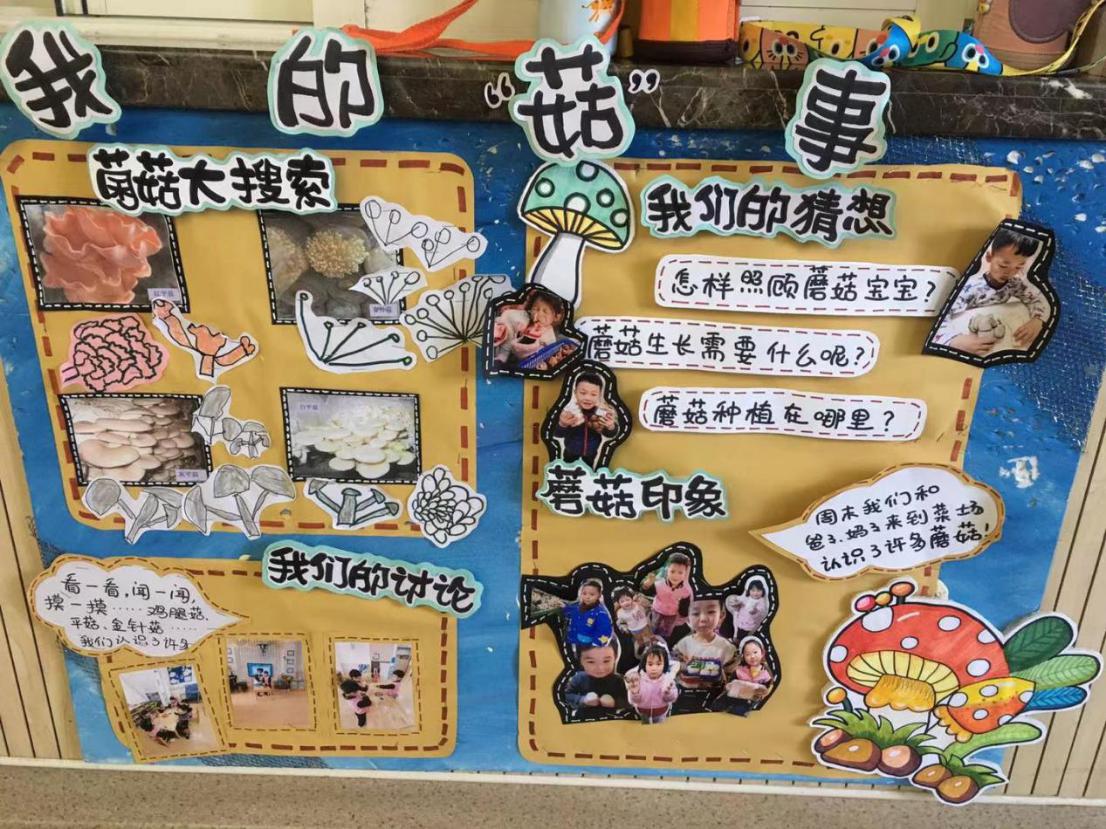 我的“菇”事
菌菇大搜索
白平菇
我们的猜想
怎样照顾蘑菇宝宝?
蘑菇生长需要什么呢?
蘑菇种植在哪里?
蘑菇印象
周末我们和
爸ㄋ妈ㄋ来到菜场
认识了许多蘑菇!
我们的讨论
看一看,闻一闻,
摸一摸……鸡腿菇、
平菇、金针菇……
我们认识了许多